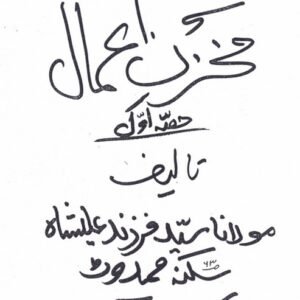 مخزن اعمال
حصہ اول
تالیف
مولانا سید فرزند علیشاہ
سکنہ محمد وٹ